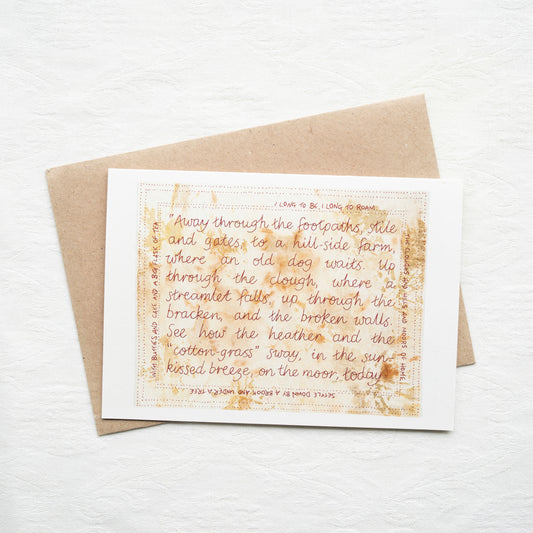 I LONG TO BE, I LONG TO ROAM
"Away through the footpaths, stile
and gates, to a hill-side farm,
where an old dog waits. Up
through the clough, where a
streamlet falls, up through the
bracken, and the broken walls.
See how the heather and the
"cotton-grass" sway, in the sun-
kissed breeze, on the moor, today.
SETTLE DOWN BY A BROOK AND UNDER A TREE
AND CAKE AND A BIG FLASK OF TEA